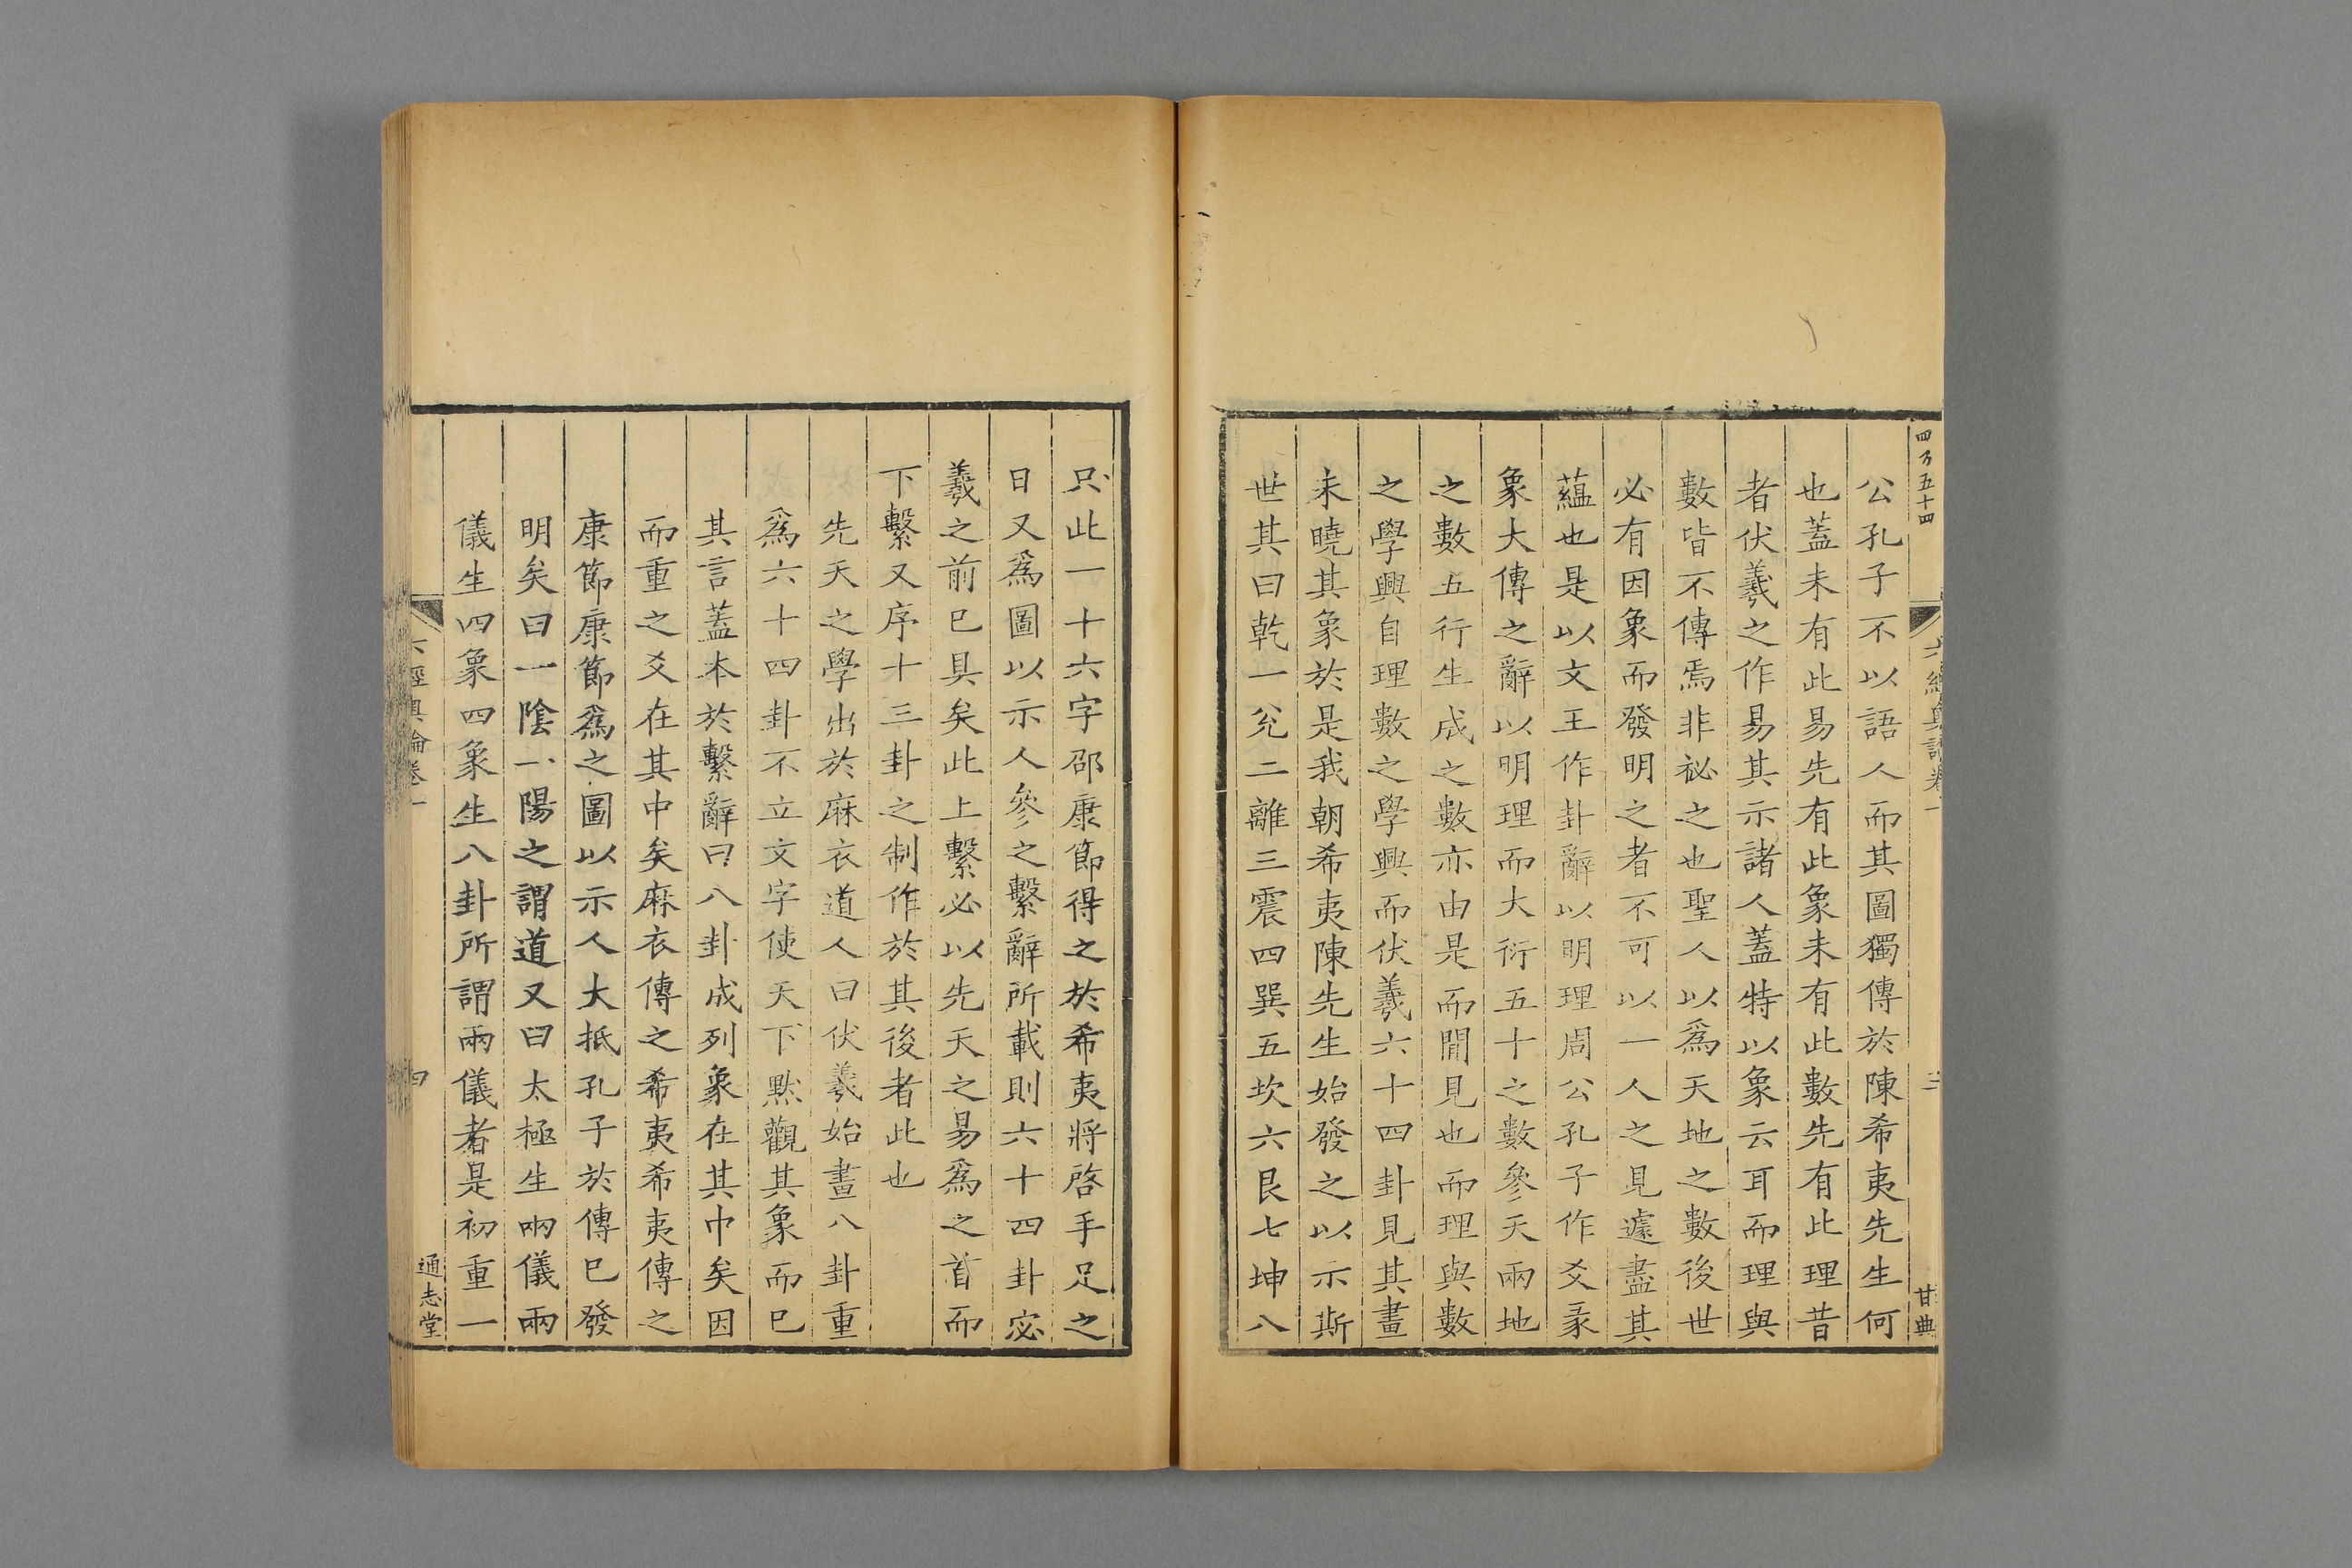 四万五十四
六經奧論卷一
三
甘典
公孔子不以語人而其圖獨傳於陳希夷先生何
也蓋未有此易先有此象未有此數先有此理昔
者伏羲之作易其示諸人蓋特以象云耳而理與
數皆不傳焉非祕之也聖人以爲天地之數後世
必有因象而發明之者不可以一人之見遽盡其
蘊也是以文王作卦辭以明理周公孔子作爻彖
象大傳之辭以明理而大衍五十之數參天兩地
之數五行生成之數亦由是而閒見也而理與數
之學興自理數之學興而伏羲六十四卦見其畫
未曉其象於是我朝希夷陳先生始發之以示斯
世其曰乾一兊二離三震四巽五坎六艮七坤八
只此一十六字邵康節得之於希夷將啓手足之
日又爲圖以示人參之繫辭所載則六十四卦宓
羲之前已具矣此上繫必以先天之易爲之首而
下繫又序十三卦之制作於其後者此也
先天之學出於麻衣道人曰伏羲始畫八卦重
爲六十四卦不立文字使天下默觀其象而已
其言蓋本於繫辭曰八卦成列象在其中矣因
而重之爻在其中矣麻衣傳之希夷希夷傳之
康節康節爲之圖以示人大抵孔子於傳已發
明矣曰一陰一陽之謂道又曰太極生兩儀兩
儀生四象四象生八卦所謂兩儀者是初重一
六經奧論卷一
四
通志堂